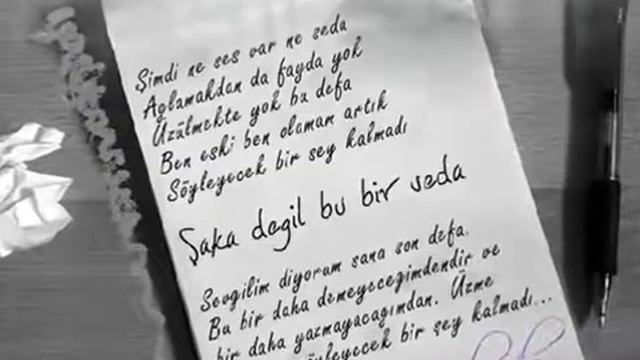 Şimdi ne ses var ne seda
Ağlamakdan da fayda yok
Üzülmekte yok bu defa
Ben eski ben olamam artık
Söyleyecek bir şey kalmadı
Şaka degil bu bir veda
Sevgilim diyorum sana son defa.
Bu bir daha demeyeceğimdendir ve
bir daha yazmayacağımdan. Üzme
söyleyecek bir şey kalmadı...